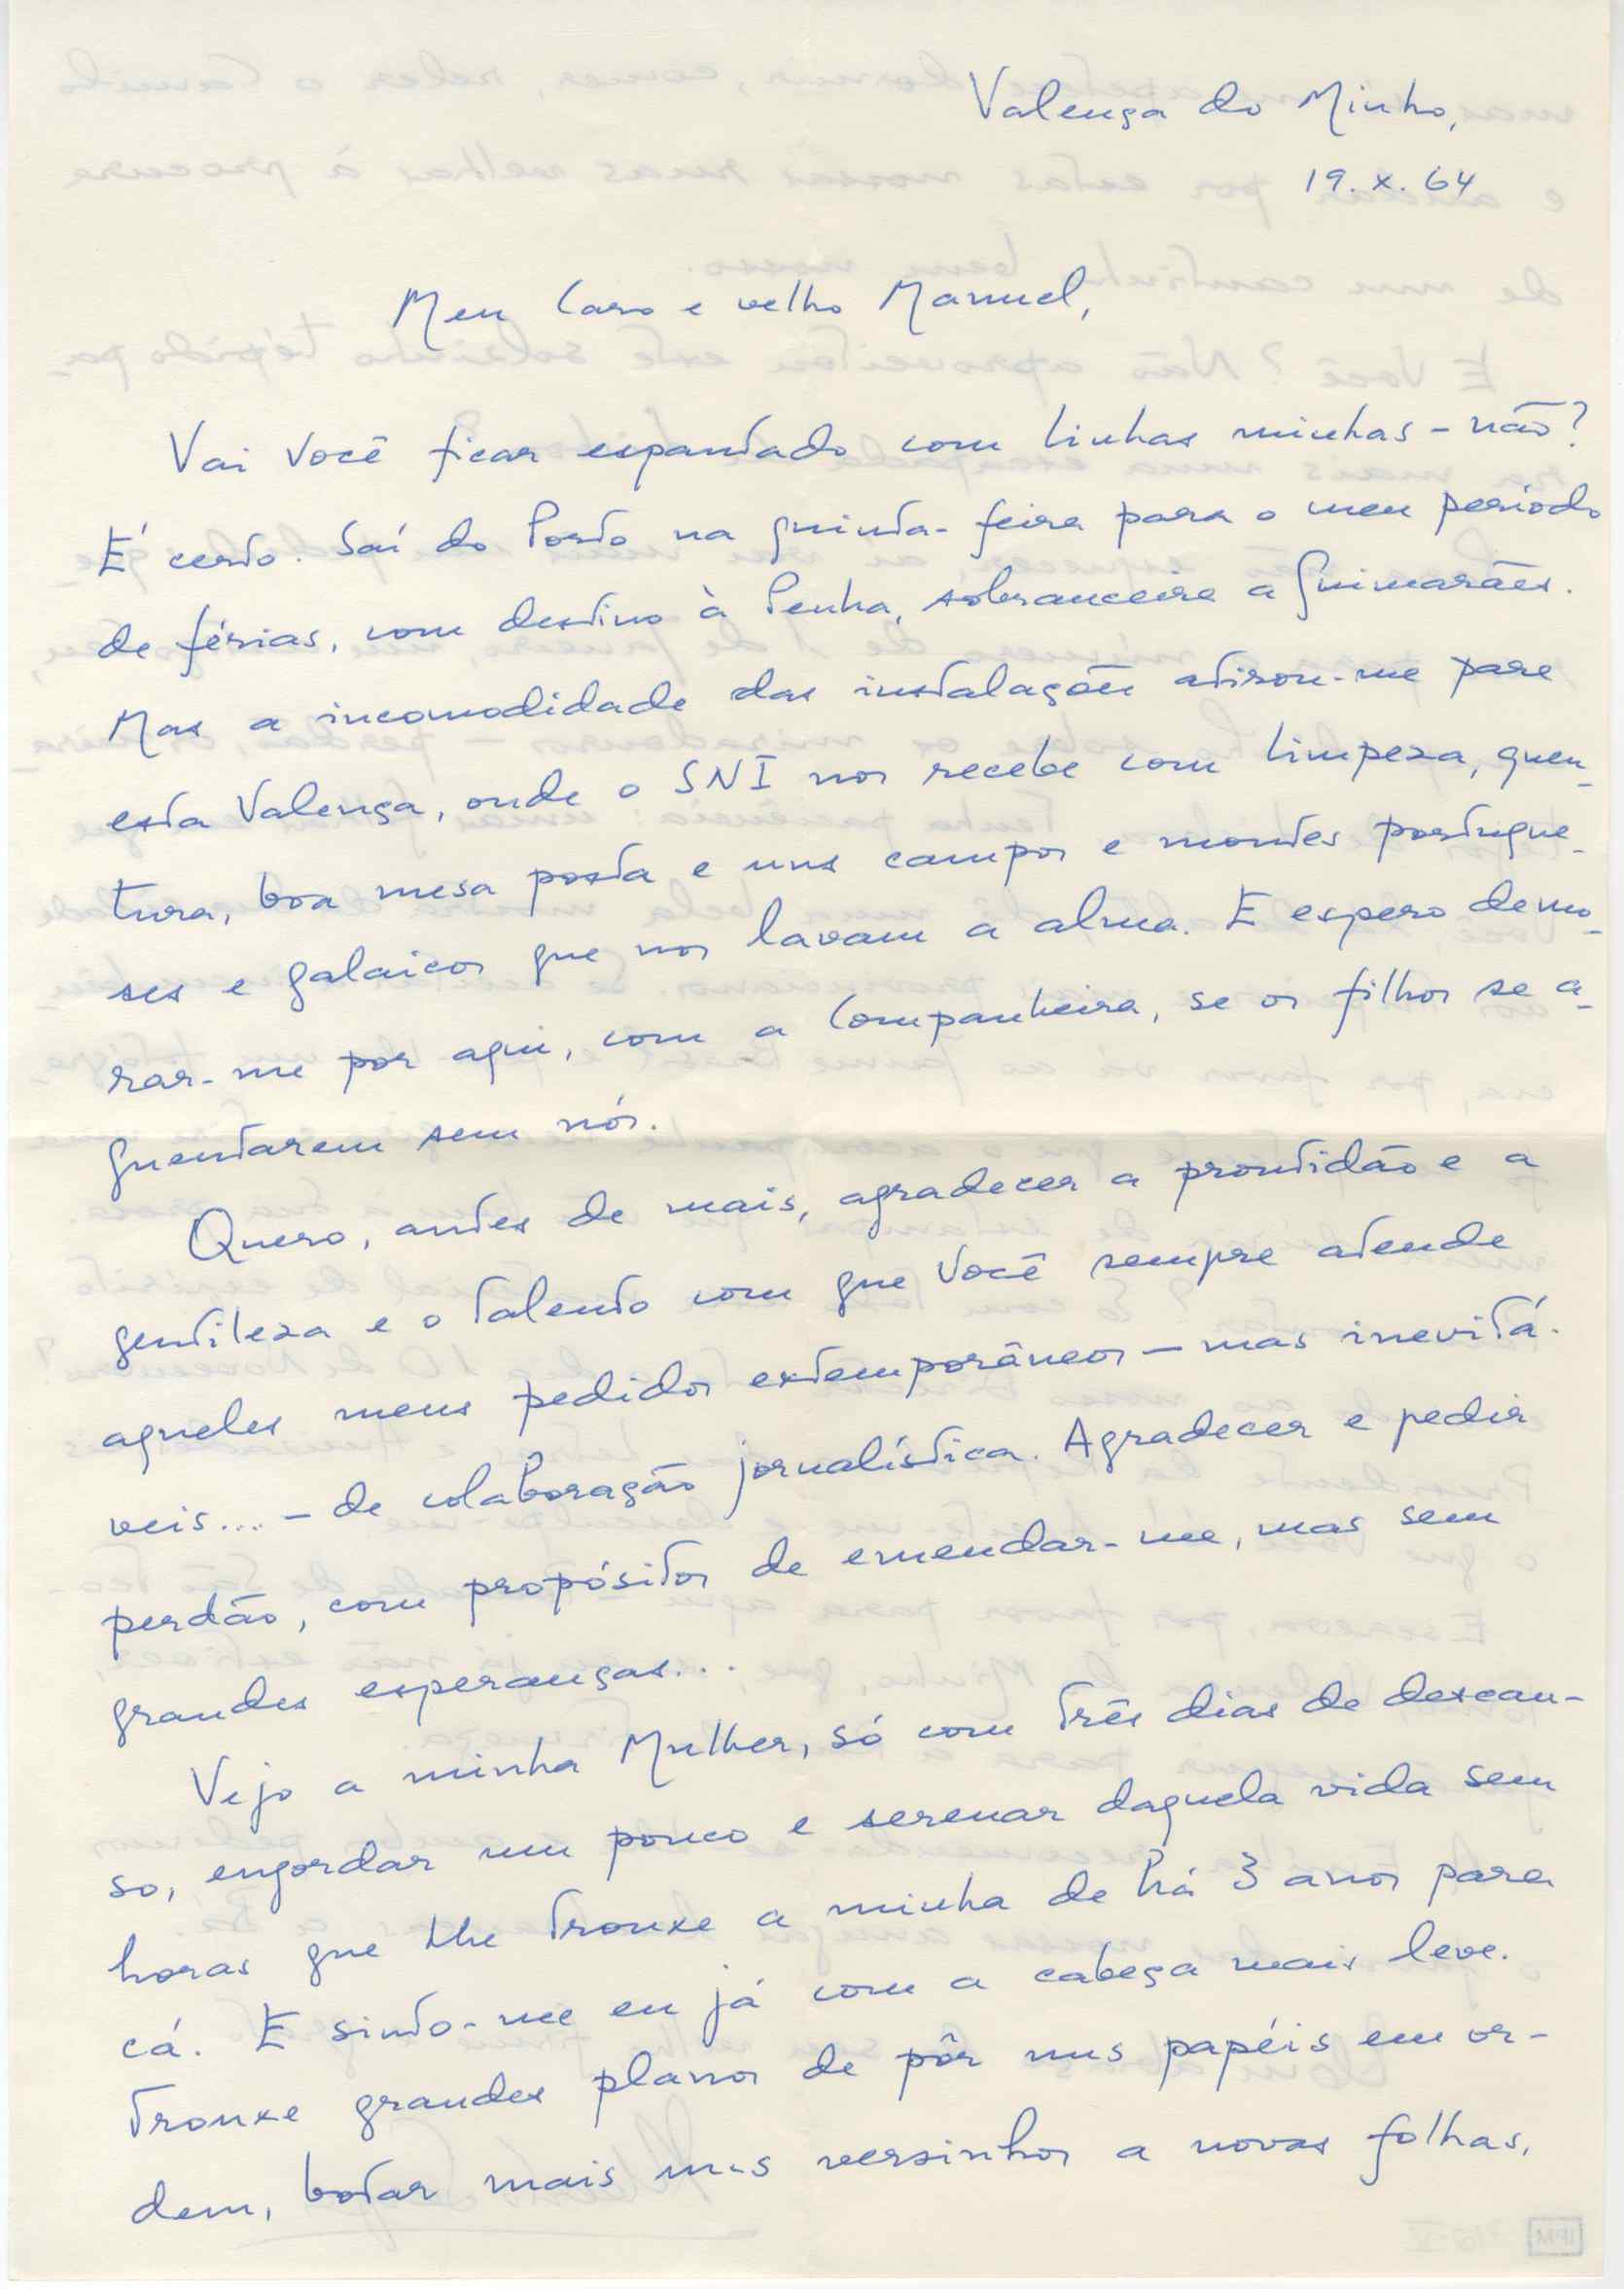 Valença do Minho,
19.X.64
Meu Caro e velho Manuel,
Vai Você ficar espantado com linhas minhas - não?
É certo. Saí do Porto na quinta-feira para o meu período
de férias, com destino à Penha, sobranceira a Guimarães.
Mas a incomodidade das instalações atirou-me para
esta Valença, onde o SNI nos recebe com limpeza, quen-
tura, boa mesa posta e uns campos e montes portugue-
ses e galaicos que nos lavam a alma. E espero demo-
rar-me por aqui, com a Companheira, se os filhos se a-
guentarem sem nós.
Quero, antes de mais, agradecer a prontidão e a
gentileza e o talento com que Você sempre atende
aqueles meus pedidos extemporâneos - mas inevitá-
veis... - de colaboração jornalística. Agradecer e pedir
perdão, com propósitos de emendar-me, mas sem
grandes esperanças...
Vejo a minha Mulher, só com três dias de descan-
so, engordar um pouco e serenar daquela vida sem
horas que lhe trouxe a minha de há 3 anos para
cá. E sinto-me eu já com a cabeça mais leve.
Trouxe grandes planos de pôr uns papéis em or-
dem, botar mais uns versinhos a novas folhas,